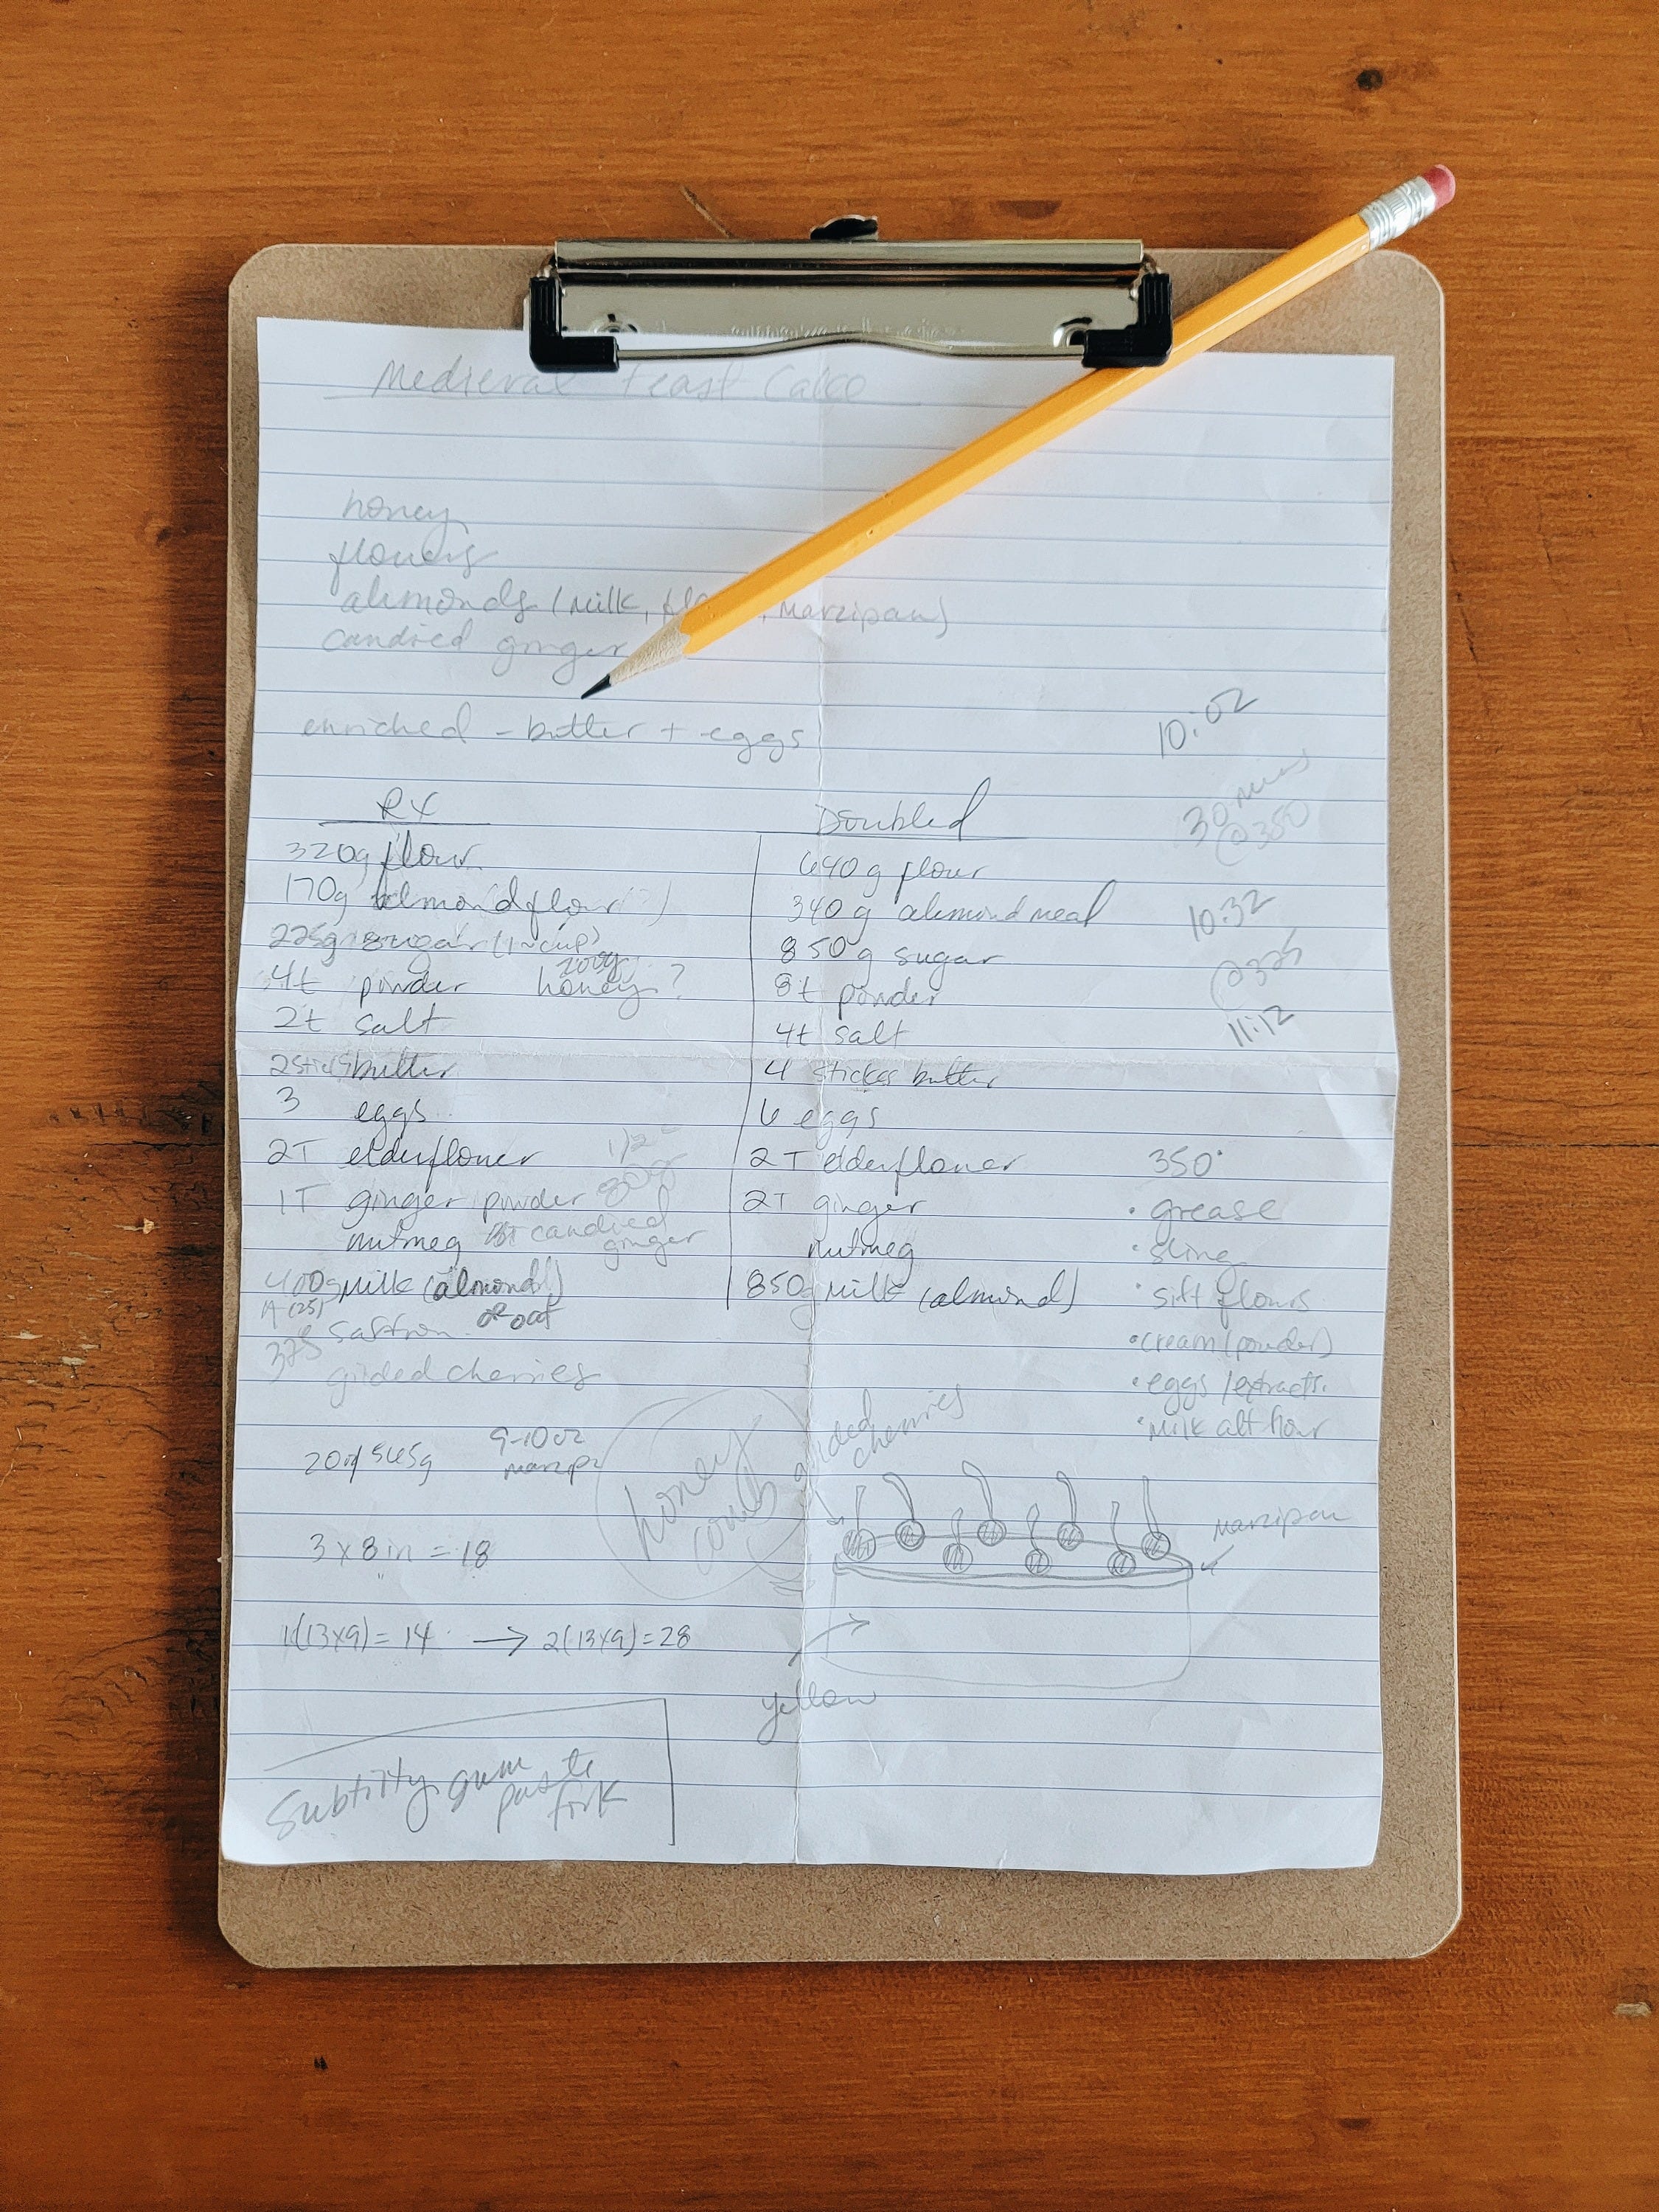 Medieval Feast Cake
honey
flowers
almonds (milk, , marzipan)
candied ginger
enriched - butter + eggs
10:02
30 mins
@350
10:32
@325
11:12
RX
320g flour
170g almond flour
225g sugar (1 cup)
4t powder honey?
200g
2t salt
2 sticks butter
3 eggs
2T elderflower
1T ginger powder
nutmeg candied
ginger
400g milk (almond)
or oat
saffron
gilded cherries
Doubled
640g flour
340g almond meal
850g sugar
8t powder
4t salt
4 sticks butter
6 eggs
2T elderflower
2T ginger
nutmeg
850g milk (almond)
350°
• grease
• sling
• sift flours
• cream (powder)
• eggs/extracts
• milk alt flour
9-10oz
honey
comb
gilded
cherries
marzipan
yellow
3 x 8in = 18
1(13x9) = 14 → 2(13x9) = 28
gum
paste
fork